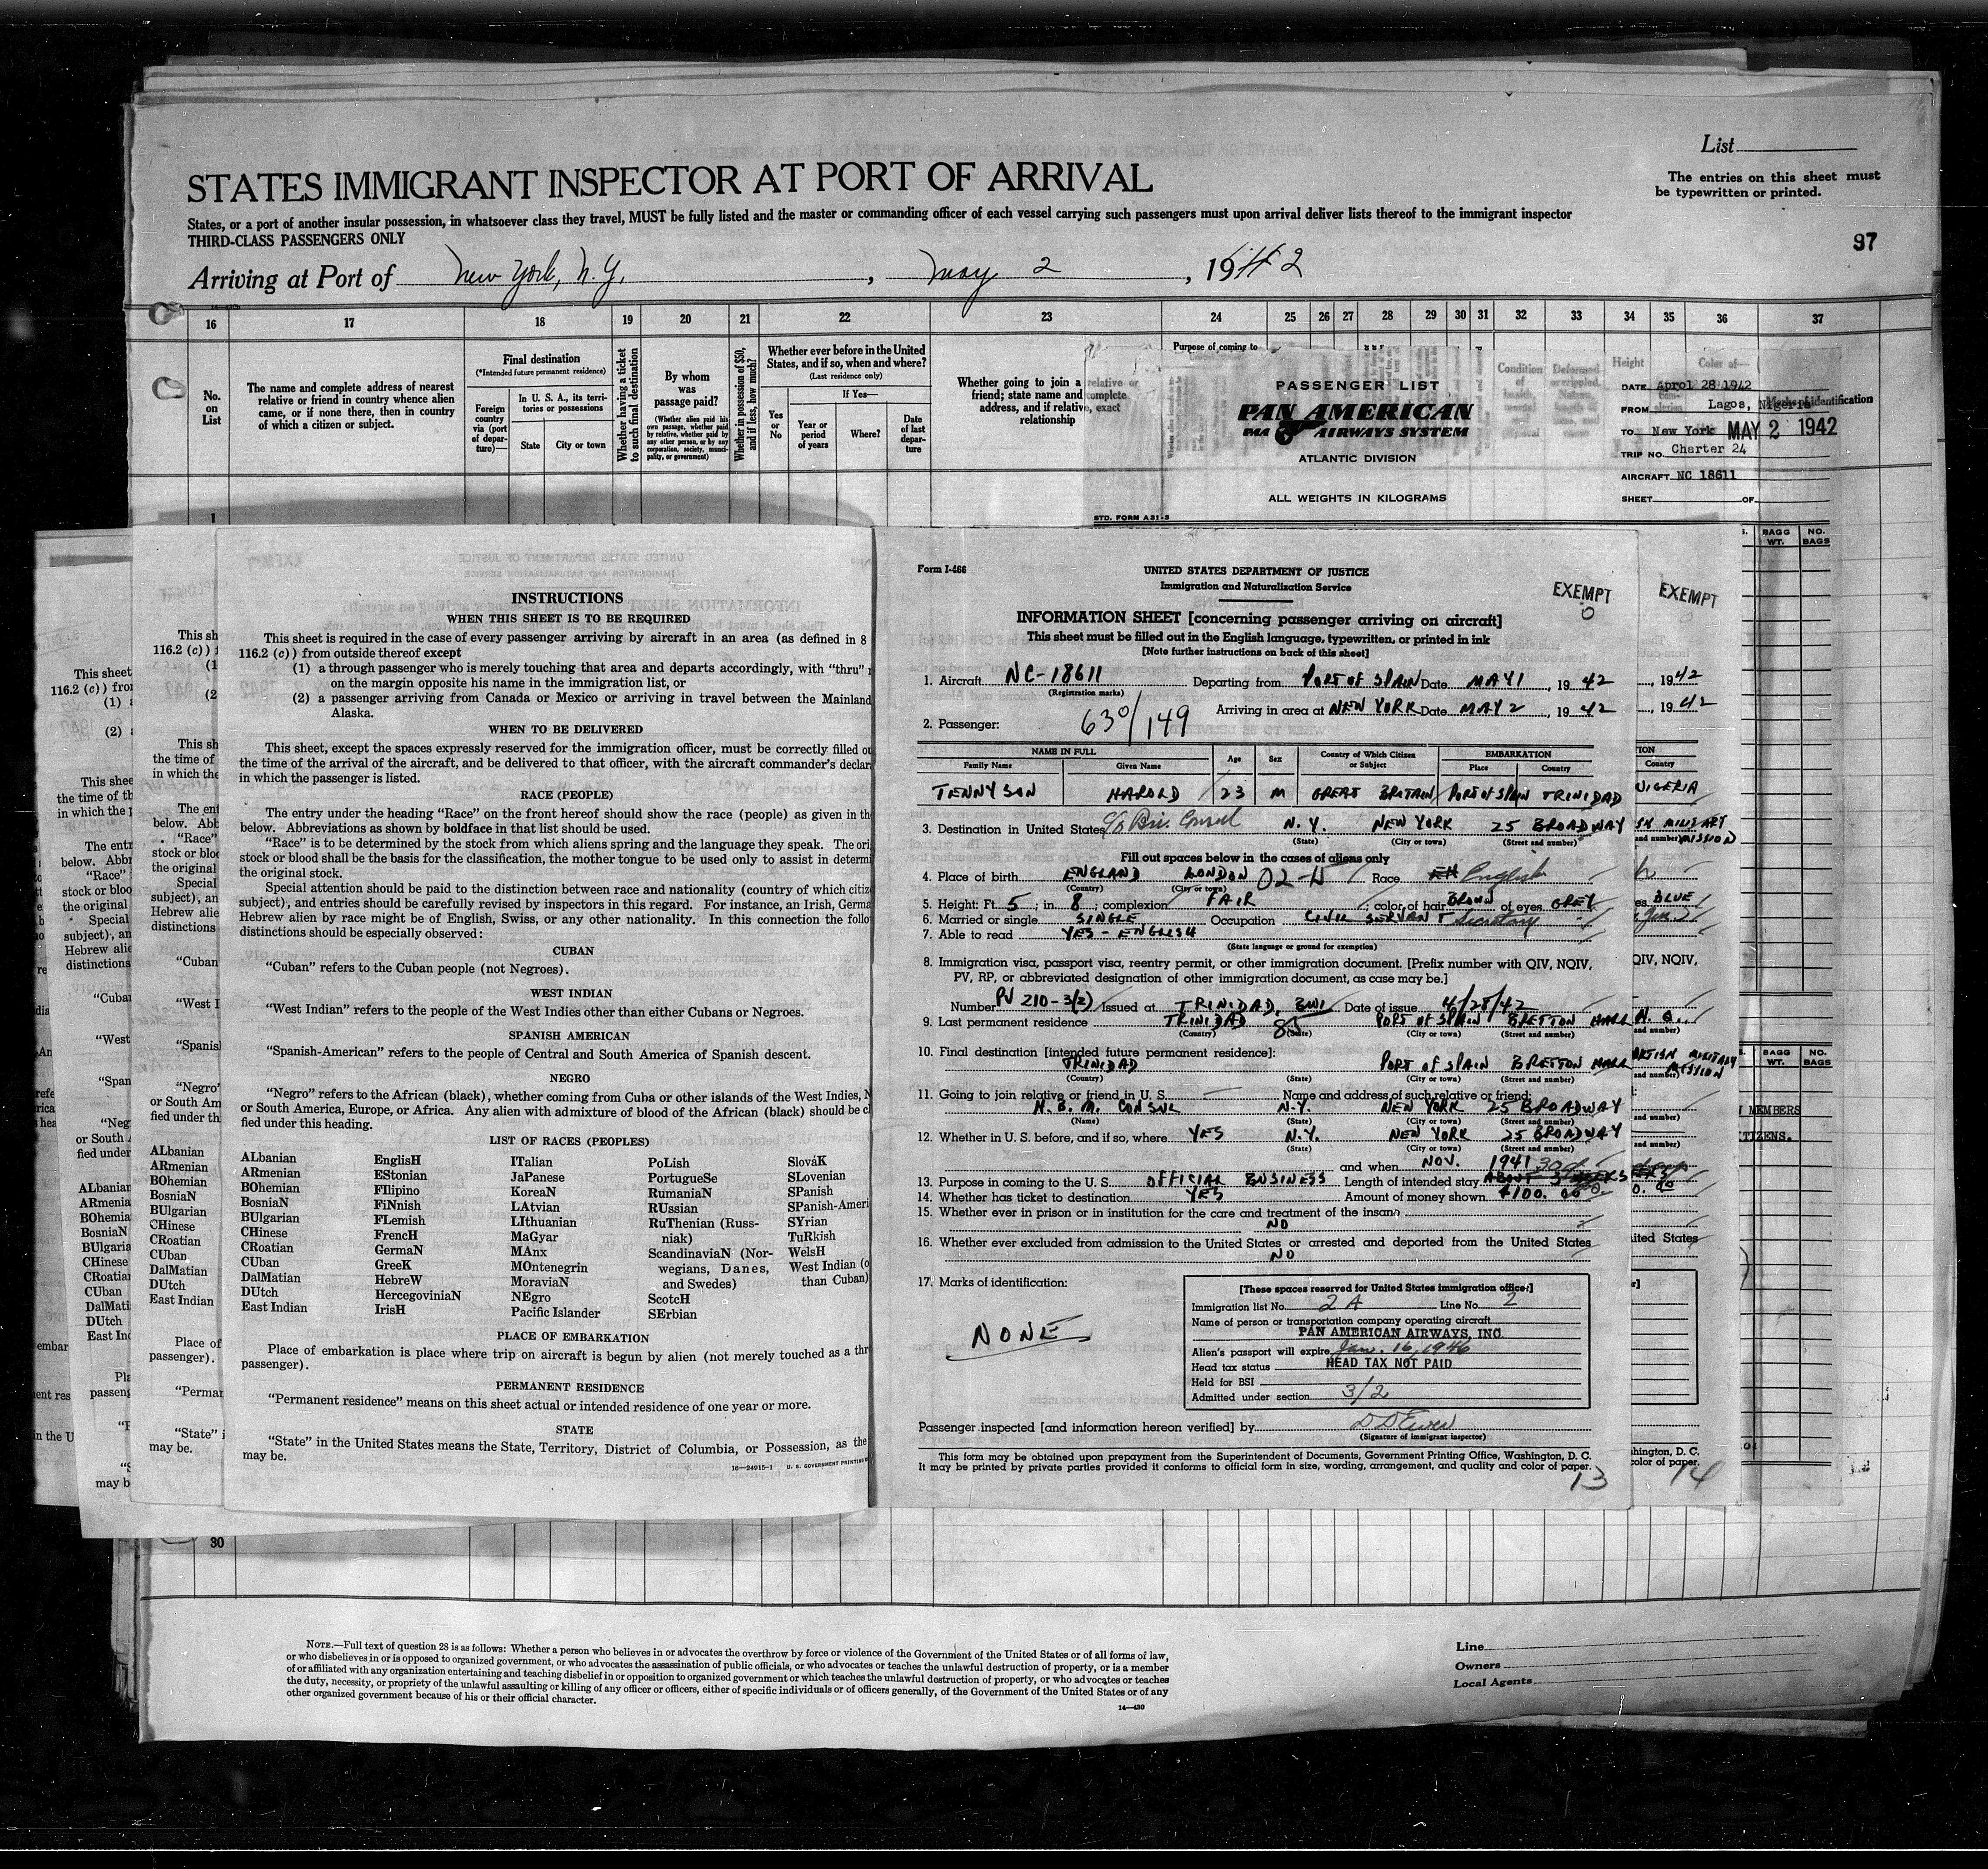 List
STATES IMMIGRANT INSPECTOR AT PORT OF ARRIVAL
The entries on this sheet must
be typewritten or printed.
States, or a port of another insular possession, in whatsoever class they travel, MUST be fully listed and the master or commanding officer of each vessel carrying such passengers must upon arrival deliver lists thereof to the immigrant inspector
THIRD-CLASS PASSENGERS ONLY
97
Arriving at Port of New York, N.Y., May 2, 1942
16 17 18 19 20 21 22 23 24 25 26 27 28 29 30 31 32 33 34 35 36 37
No.
on
List
The name and complete address of nearest
relative or friend in country whence alien
came, or if none there, then in country
of which a citizen or subject.
Final destination
(*Intended future permanent residence)
Foreign
country
via (port
of depar-
ture)—
In U. S. A., its terri-
tories or possessions
State
City or town
Whether having a ticket
to such final destination
By whom
was
passage paid?
(Whether alien paid his
own passage, whether paid
by relative, whether paid by
any other person, or by any
corporation, society, munici-
pality, or government)
Whether in possession of $50,
and if less, how much?
Whether ever before in the United
States, and if so, when and where?
(Last residence only)
Yes
or
No
If Yes—
Year or
period
of years
Where?
Date
of last
depar-
ture
Whether going to join a relative or
friend; state name and complete
address, and if relative, exact
relationship
Purpose of coming to
Condition
of
health
Deformed
or crippled.
Height
Color of—
Marks of identification
PASSENGER LIST
PAN AMERICAN
PAA AIRWAYS SYSTEM
ATLANTIC DIVISION
ALL WEIGHTS IN KILOGRAMS
STD. FORM A31-3
DATE Aprol 28 1942
FROM Lagos, Nigeria
TO New York MAY 2 1942
TRIP NO. Charter 24
AIRCRAFT NC 18611
SHEET OF
BAGG
WT.
NO.
BAGS
1
INSTRUCTIONS
WHEN THIS SHEET IS TO BE REQUIRED
This sheet is required in the case of every passenger arriving by aircraft in an area (as defined in 8
116.2 (c)) from outside thereof except
(1) a through passenger who is merely touching that area and departs accordingly, with “thru”
on the margin opposite his name in the immigration list, or
(2) a passenger arriving from Canada or Mexico or arriving in travel between the Mainland
Alaska.
WHEN TO BE DELIVERED
This sheet, except the spaces expressly reserved for the immigration officer, must be correctly filled ou
the time of the arrival of the aircraft, and be delivered to that officer, with the aircraft commander's declar
in which the passenger is listed.
RACE (PEOPLE)
The entry under the heading “Race” on the front hereof should show the race (people) as given in th
below. Abbreviations as shown by boldface in that list should be used.
“Race” is to be determined by the stock from which aliens spring and the language they speak. The ori
stock or blood shall be the basis for the classification, the mother tongue to be used only to assist in determi
the original stock.
Special attention should be paid to the distinction between race and nationality (country of which citiz
subject), and entries should be carefully revised by inspectors in this regard. For instance, an Irish, Germa
Hebrew alien by race might be of English, Swiss, or any other nationality. In this connection the follo
distinctions should be especially observed:
CUBAN
“Cuban” refers to the Cuban people (not Negroes).
WEST INDIAN
“West Indian” refers to the people of the West Indies other than either Cubans or Negroes.
SPANISH AMERICAN
“Spanish-American” refers to the people of Central and South America of Spanish descent.
NEGRO
“Negro” refers to the African (black), whether coming from Cuba or other islands of the West Indies, N
or South America, Europe, or Africa. Any alien with admixture of blood of the African (black) should be cl
fied under this heading.
LIST OF RACES (PEOPLES)
ALbanian
ARmenian
BOhemian
BosniaN
BUlgarian
CHinese
CRoatian
CUban
DalMatian
DUtch
East Indian
EnglisH
EStonian
FIlipino
FiNnish
FLemish
FrencH
GermaN
GreeK
HebreW
HercegoviniaN
IrisH
ITalian
JaPanese
KoreaN
LAtvian
LIthuanian
MaGyar
MAnx
MOntenegrin
MoraviaN
NEgro
Pacific Islander
PoLish
PortugueSe
RumaniaN
RUssian
RuThenian (Russ-
niak)
ScandinaviaN (Nor-
wegians, Danes,
and Swedes)
ScotcH
SErbian
SlováK
SLovenian
SPanish
SPanish-Ameri
SYrian
TuRkish
WelsH
West Indian (o
than Cuban)
PLACE OF EMBARKATION
Place of embarkation is place where trip on aircraft is begun by alien (not merely touched as a thr
passenger).
PERMANENT RESIDENCE
“Permanent residence” means on this sheet actual or intended residence of one year or more.
STATE
“State” in the United States means the State, Territory, District of Columbia, or Possession, as the
may be.
16—24915-1 U. S. GOVERNMENT PRINTING
Form I-466
UNITED STATES DEPARTMENT OF JUSTICE
Immigration and Naturalization Service
EXEMPT
EXEMPT
INFORMATION SHEET [concerning passenger arriving on aircraft]
This sheet must be filled out in the English language, typewritten, or printed in ink
[Note further instructions on back of this sheet]
1. Aircraft NC-18611 Departing from PORT OF SPAIN Date MAY 1, 1942
(Registration marks)
Arriving in area at NEW YORK Date MAY 2, 1942
2. Passenger: 630/149
NAME IN FULL
Family Name
Given Name
Age
Sex
Country of Which Citizen
or Subject
EMBARKATION
Place
Country
TENNYSON HAROLD 23 M GREAT BRITAIN PORT OF SPAIN TRINIDAD
3. Destination in United States c/o Bri. Consul N.Y. NEW YORK 25 BROADWAY
(State) (City or town) (Street and number)
Fill out spaces below in the cases of aliens only
4. Place of birth ENGLAND LONDON Race English
(Country) (City or town)
5. Height: Ft. 5; in 8; complexion FAIR; color of hair BROWN of eyes GREY
6. Married or single SINGLE Occupation CIVIL SERVANT Secretary
7. Able to read YES - ENGLISH
(State language or ground for exemption)
8. Immigration visa, passport visa, reentry permit, or other immigration document. [Prefix number with QIV, NQIV,
PV, RP, or abbreviated designation of other immigration document, as case may be.]
Number PV 210-3(2) Issued at TRINIDAD, BWI Date of issue 4/28/42
9. Last permanent residence TRINIDAD PORT OF SPAIN BRETTON HALL
(Country) (State) (City or town) (Street and number)
10. Final destination [intended future permanent residence]:
TRINIDAD PORT OF SPAIN BRETTON HALL
(Country) (State) (City or town) (Street and number)
11. Going to join relative or friend in U. S. — Name and address of such relative or friend:
H. B. M. CONSUL N.Y. NEW YORK 25 BROADWAY
(Name) (State) (City or town) (Street and number)
12. Whether in U. S. before, and if so, where YES N.Y. NEW YORK 25 BROADWAY
(State) (City or town) (Street and number)
and when NOV. 1941
13. Purpose in coming to the U. S. OFFICIAL BUSINESS Length of intended stay
14. Whether has ticket to destination YES Amount of money shown $100.00
15. Whether ever in prison or in institution for the care and treatment of the insane
NO
16. Whether ever excluded from admission to the United States or arrested and deported from the United States
NO
17. Marks of identification:
NONE
[These spaces reserved for United States immigration officer:]
Immigration list No. 2A Line No. 2
Name of person or transportation company operating aircraft
PAN AMERICAN AIRWAYS, INC.
Alien's passport will expire Jan. 16, 1946
Head tax status HEAD TAX NOT PAID
Held for BSI
Admitted under section 3/2
Passenger inspected [and information hereon verified] by
(Signature of immigrant inspector)
This form may be obtained upon prepayment from the Superintendent of Documents, Government Printing Office, Washington, D. C.
It may be printed by private parties provided it conforms to official form in size, wording, arrangement, and quality and color of paper.
13
14
30
NOTE.—Full text of question 28 is as follows: Whether a person who believes in or advocates the overthrow by force or violence of the Government of the United States or of all forms of law,
or who disbelieves in or is opposed to organized government, or who advocates the assassination of public officials, or who advocates or teaches the unlawful destruction of property, or is a member
of or affiliated with any organization entertaining and teaching disbelief in or opposition to organized government or which teaches the unlawful destruction of property, or who advocates or teaches
the duty, necessity, or propriety of the unlawful assaulting or killing of any officer or officers, either of specific individuals or of officers generally, of the Government of the United States or of any
other organized government because of his or their official character.
14—430
Line
Owners
Local Agents